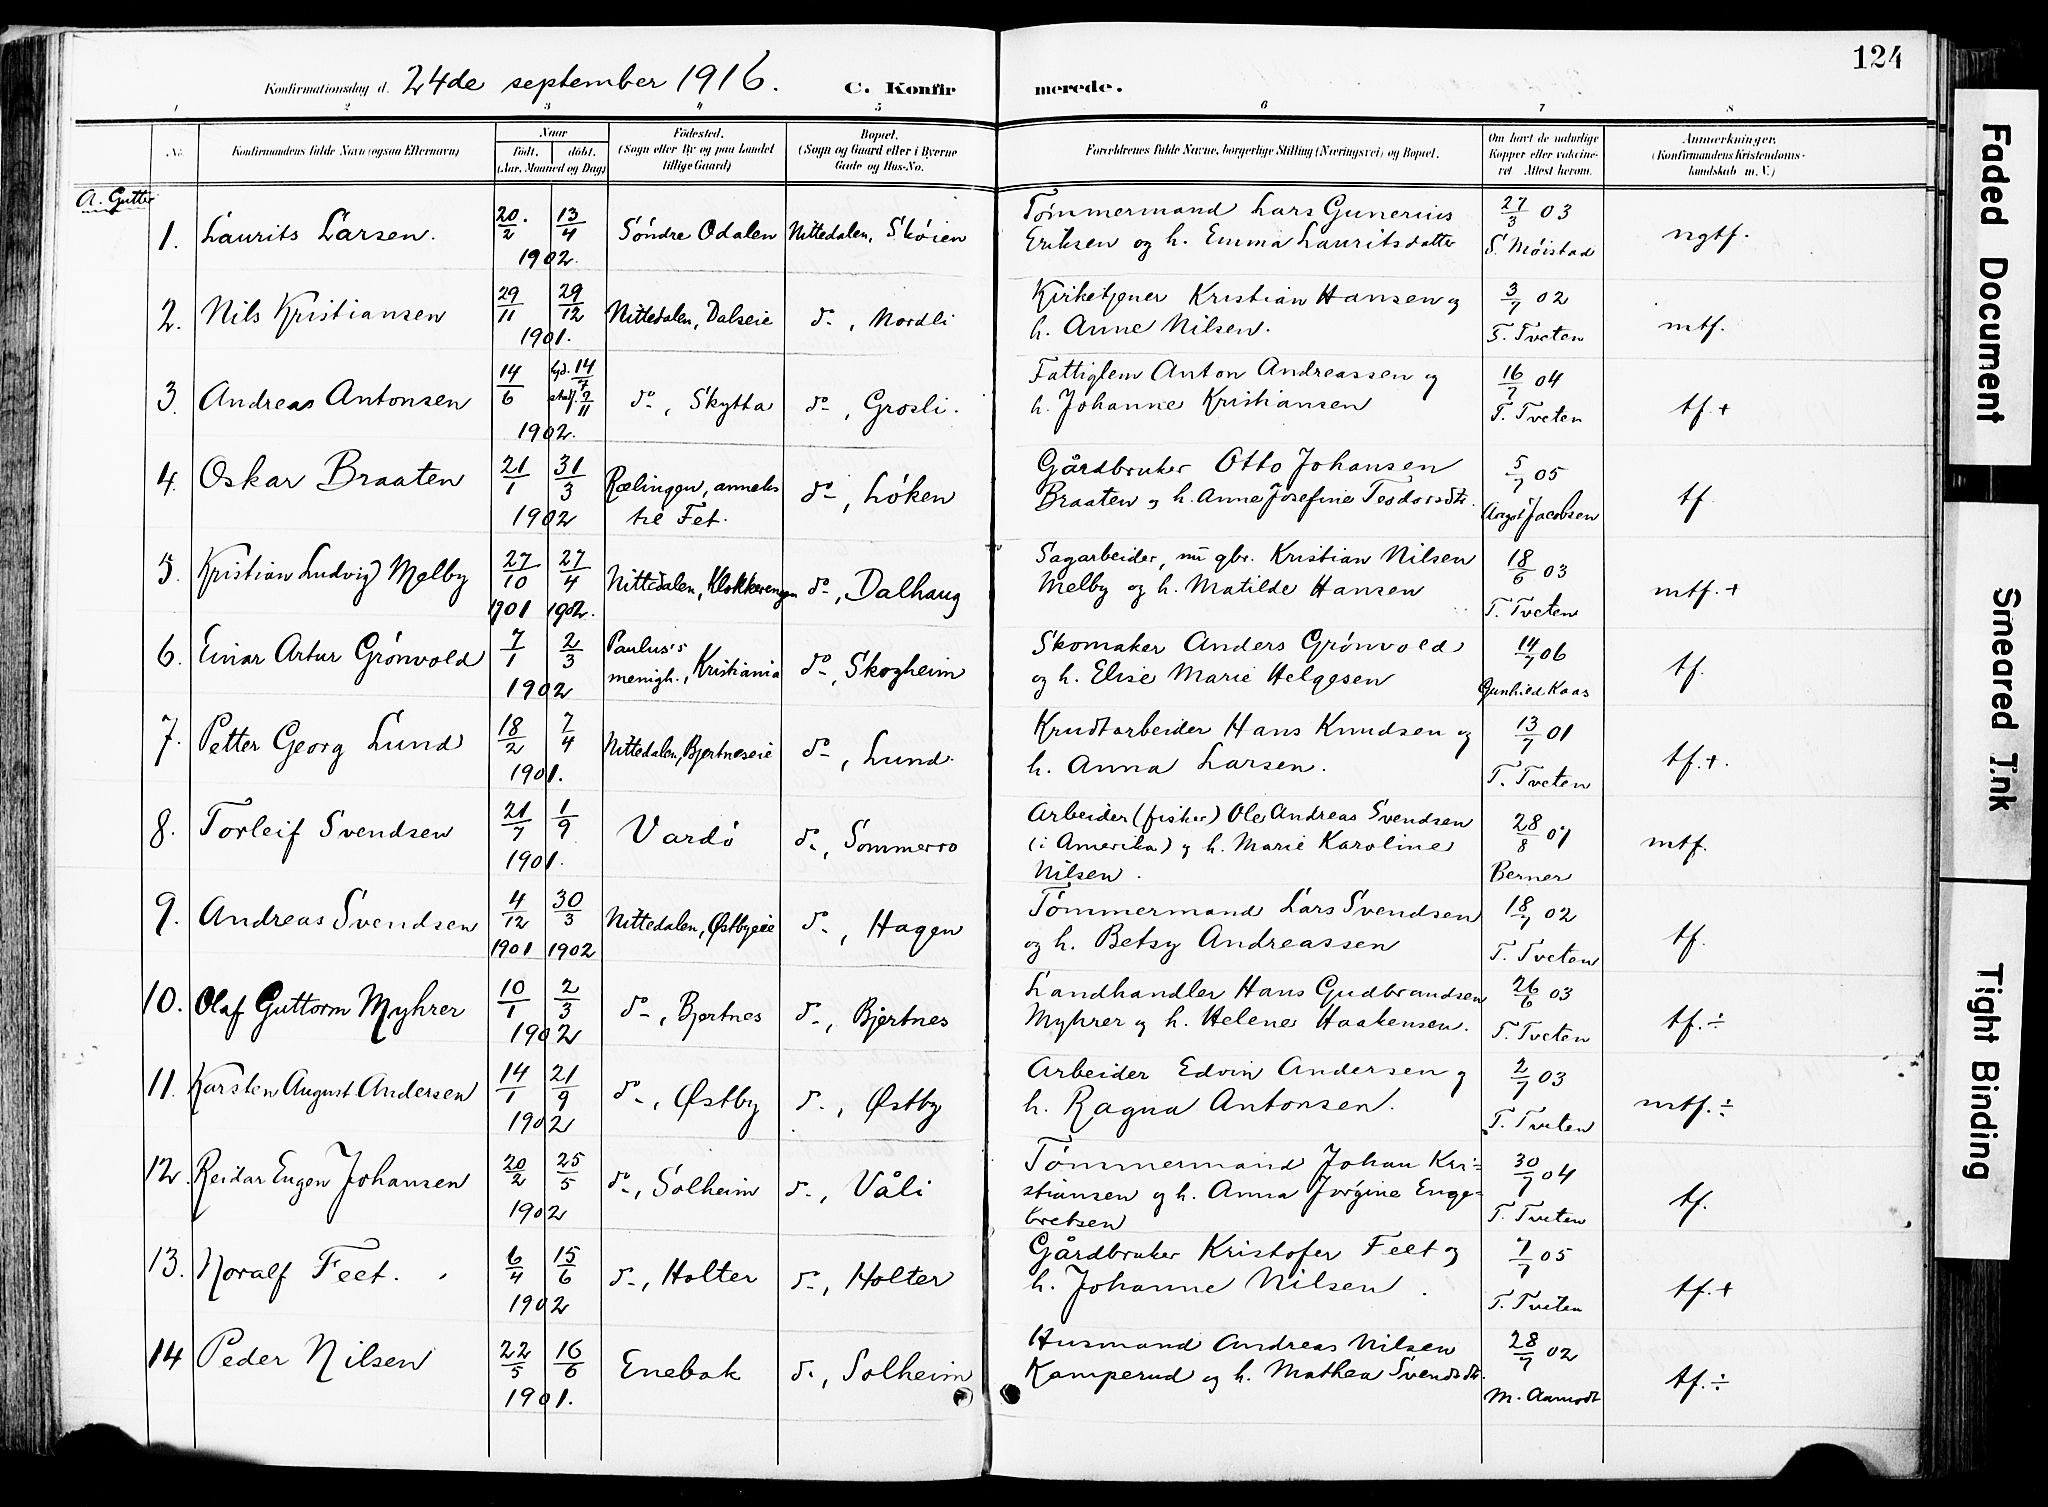 124
Konfirmationsdag d. 24de september 1916. C. Konfirmerede.
1 2 3 4 5 6 7 8
No. Konfirmandens fulde Navn (ogsaa Efternavn) Naar født. døbt. (Aar, Maaned og Dag) Fødested. (Sogn eller By og paa Landet tillige Gaard) Bopæl. (Sogn og Gaard eller i Byerne Gade og Hus-No. Forældrenes fulde Navne, borgerlige Stilling (Næringsvei) og Bopæl. Om havt de naturlige Kopper eller vaccineret Attest herom. Anmærkninger. (Konfirmandens Kristendomskundskab m. V.)
A. Gutter
1. Laurits Larsen. 20/2 13/4 1902. Søndre Odalen Nittedalen, Skøien Tømmermand Lars Gunerius
Eriksen og h. Emma Lauritsdatter 27/3 03 S. Møistad ngtf.
2. Nils Kristiansen 29/11 29/12 1901. Nittedalen, Dalseie do, Nordli Kirketjener Kristian Hansen og
h. Anne Nilsen. 3/7 02 T. Tveten mtf.
3. Andreas Antonsen 14/6 14/7 2/11 1902. do, Skytta do, Grosli. Fattiglem Anton Andreassen og
h. Johanne Kristiansen 16/7 04 T. Tveten tf +
4. Oskar Braaten 21/1 31/3 1902 Rælingen, anneks
til Fet. do, Løken Gårdbruker Otto Johansen
Braaten og h. Anne Josefine Teodorsdtr. 5/7 05 Aagot Jacobsen tf.
5. Kristian Ludvig Melby 27/10 1901 27/4 1902. Nittedalen, Klokkerengen do, Dalhaug Sagarbeider, nu gbr. Kristian Nilsen
Melby og h. Matilde Hansen 18/6 03 T. Tveten mtf. +
6. Einar Artur Grønvold 7/1 2/3 1902 Paulus's
menigh., Kristiania do, Skogheim Skomaker Anders Grønvold
og h. Elise Marie Helgesen 14/7 06 Gunhild Kaas tf.
7. Petter Georg Lund 18/2 7/4 1901. Nittedalen, Bjertneseie do, Lund. Krudtarbeider Hans Knudsen og
h. Anna Larsen. 13/7 01 T. Tveten tf. +.
8. Torleif Svendsen 21/7 1/9 1901. Vardø do, Sommerro Arbeider (fisker) Ole Andreas Svendsen
(i Amerika) og h. Marie Karoline
Nilsen. 28/8 01 Berner mtf.
9. Andreas Svendsen 4/12 1901 30/3 1902 Nittedalen, Østbyeie do, Hagen Tømmermand Lars Svendsen
og h. Betsy Andreassen 18/7 02 T. Tveten tf.
10. Olaf Guttorm Myhrer 10/1 2/3 1902 do, Bjertnes do, Bjertnes Landhandler Hans Gudbrandsen
Myhrer og h. Helene Haakensen. 26/6 03 T. Tveten tf. ÷
11. Karsten August Andersen 14/1 21/9 1902 do, Østby do, Østby Arbeider Edvin Andersen og
h. Ragna Antonsen. 2/7 03 T. Tveten mtf. ÷
12. Reidar Eugen Johansen 20/2 25/5 1902 do, Solheim do, Våli Tømmermand Johan Kri=
stiansen og h. Anna Jørgine Enge=
bretsen 30/7 04 T. Tveten tf.
13. Noralf Feet. 6/4 15/6 1902 do, Holter do, Holter Gårdbruker Kristofer Feet og
h. Johanne Nilsen. 7/7 05 T. Tveten tf. +
14 Peder Nilsen 22/5 16/6 1901. Enebak do, Solheim Husmand Andreas Nilsen
Kamperud og h. Mathea Svendsdtr. 28/7 02 M. Aamodt tf. ÷
Faded Document
Smeared Ink
Tight Binding